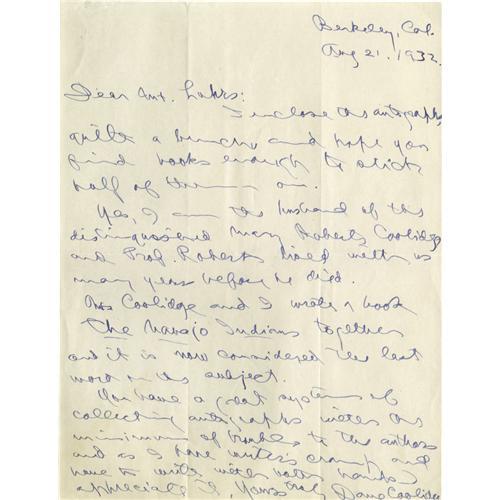 Berkeley, Cal.
Aug 21. 1932.
Dear Mr.
I enclose the autographs,
quite a bunch and hope you
find books enough to stick
half of them on.
Yes, I am the husband of the
distinguished Mary Roberts Coolidge
and Prof. Roberts lived with us
many years before he died.
Mrs Coolidge and I wrote a book
The Navajo Indians together
and it is now considered the last
word on the subject.
You have a great system of
collecting autographs with the
minimum of trouble to the authors
and as I have writer's cramp and
have to write with both hands I
appreciate it, Yours truly Dane Coolidge